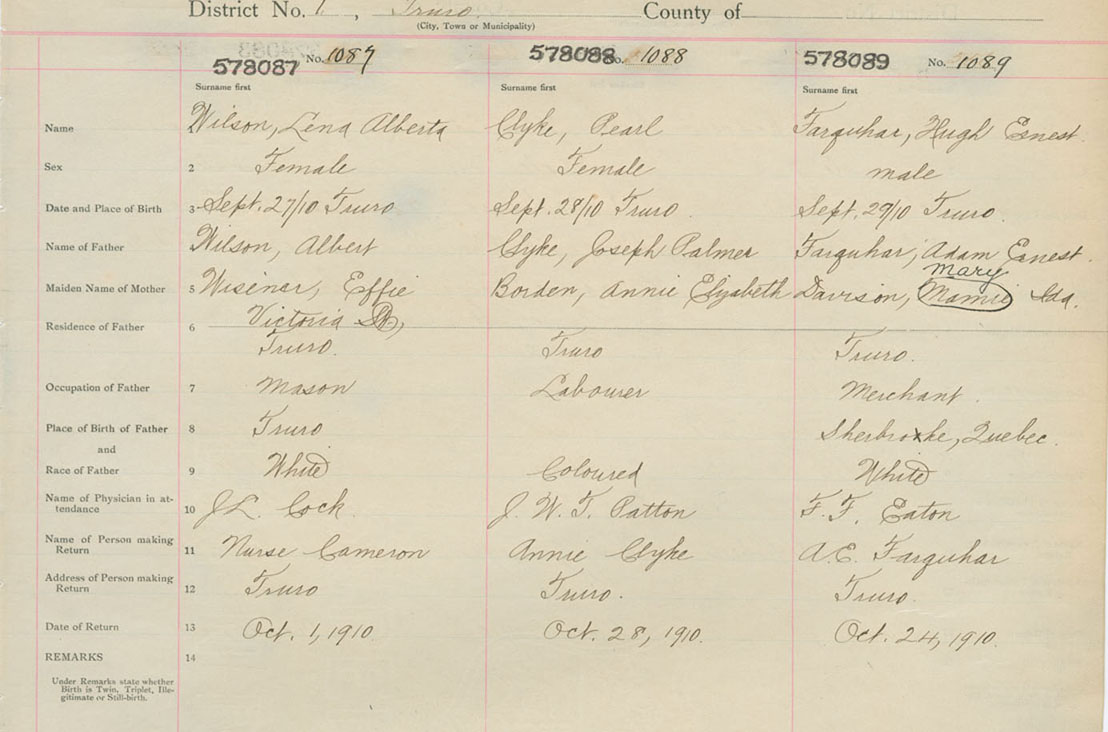 District No. 1, Truro County of
(City, Town or Municipality)
578087 No. 1087 578088 No. 1088 578089 No. 1089
Surname first Surname first Surname first
Name Wilson, Lena Alberta Clyke, Pearl Farquhar, Hugh Ernest
Sex 2 Female Female male
Date and Place of Birth 3 Sept. 27/10 Truro Sept. 28/10 Truro. Sept. 29/10 Truro.
Name of Father Wilson, Albert Clyke, Joseph Palmer Farquhar, Adam Ernest.
Mary
Maiden Name of Mother 5 Wisener, Effie Borden, Annie Elizabeth Davison, Mamie Ida.
Victoria St,
Residence of Father 6
Truro. Truro Truro.
Occupation of Father 7 Mason Labourer Merchant.
Place of Birth of Father 8 Truro Sherbrooke, Quebec.
and
Race of Father 9 White Coloured White
Name of Physician in at-
tendance 10 J.L. Cock. J. W. T. Patton F. F. Eaton
Name of Person making
Return 11 Nurse Cameron Annie Clyke A.E. Farquhar
Address of Person making
Return 12 Truro Truro. Truro.
Date of Return 13 Oct. 1, 1910 Oct. 28, 1910. Oct. 24, 1910.
REMARKS 14
Under Remarks state whether
Birth is Twin, Triplet, Ille-
gitimate or Still-birth.